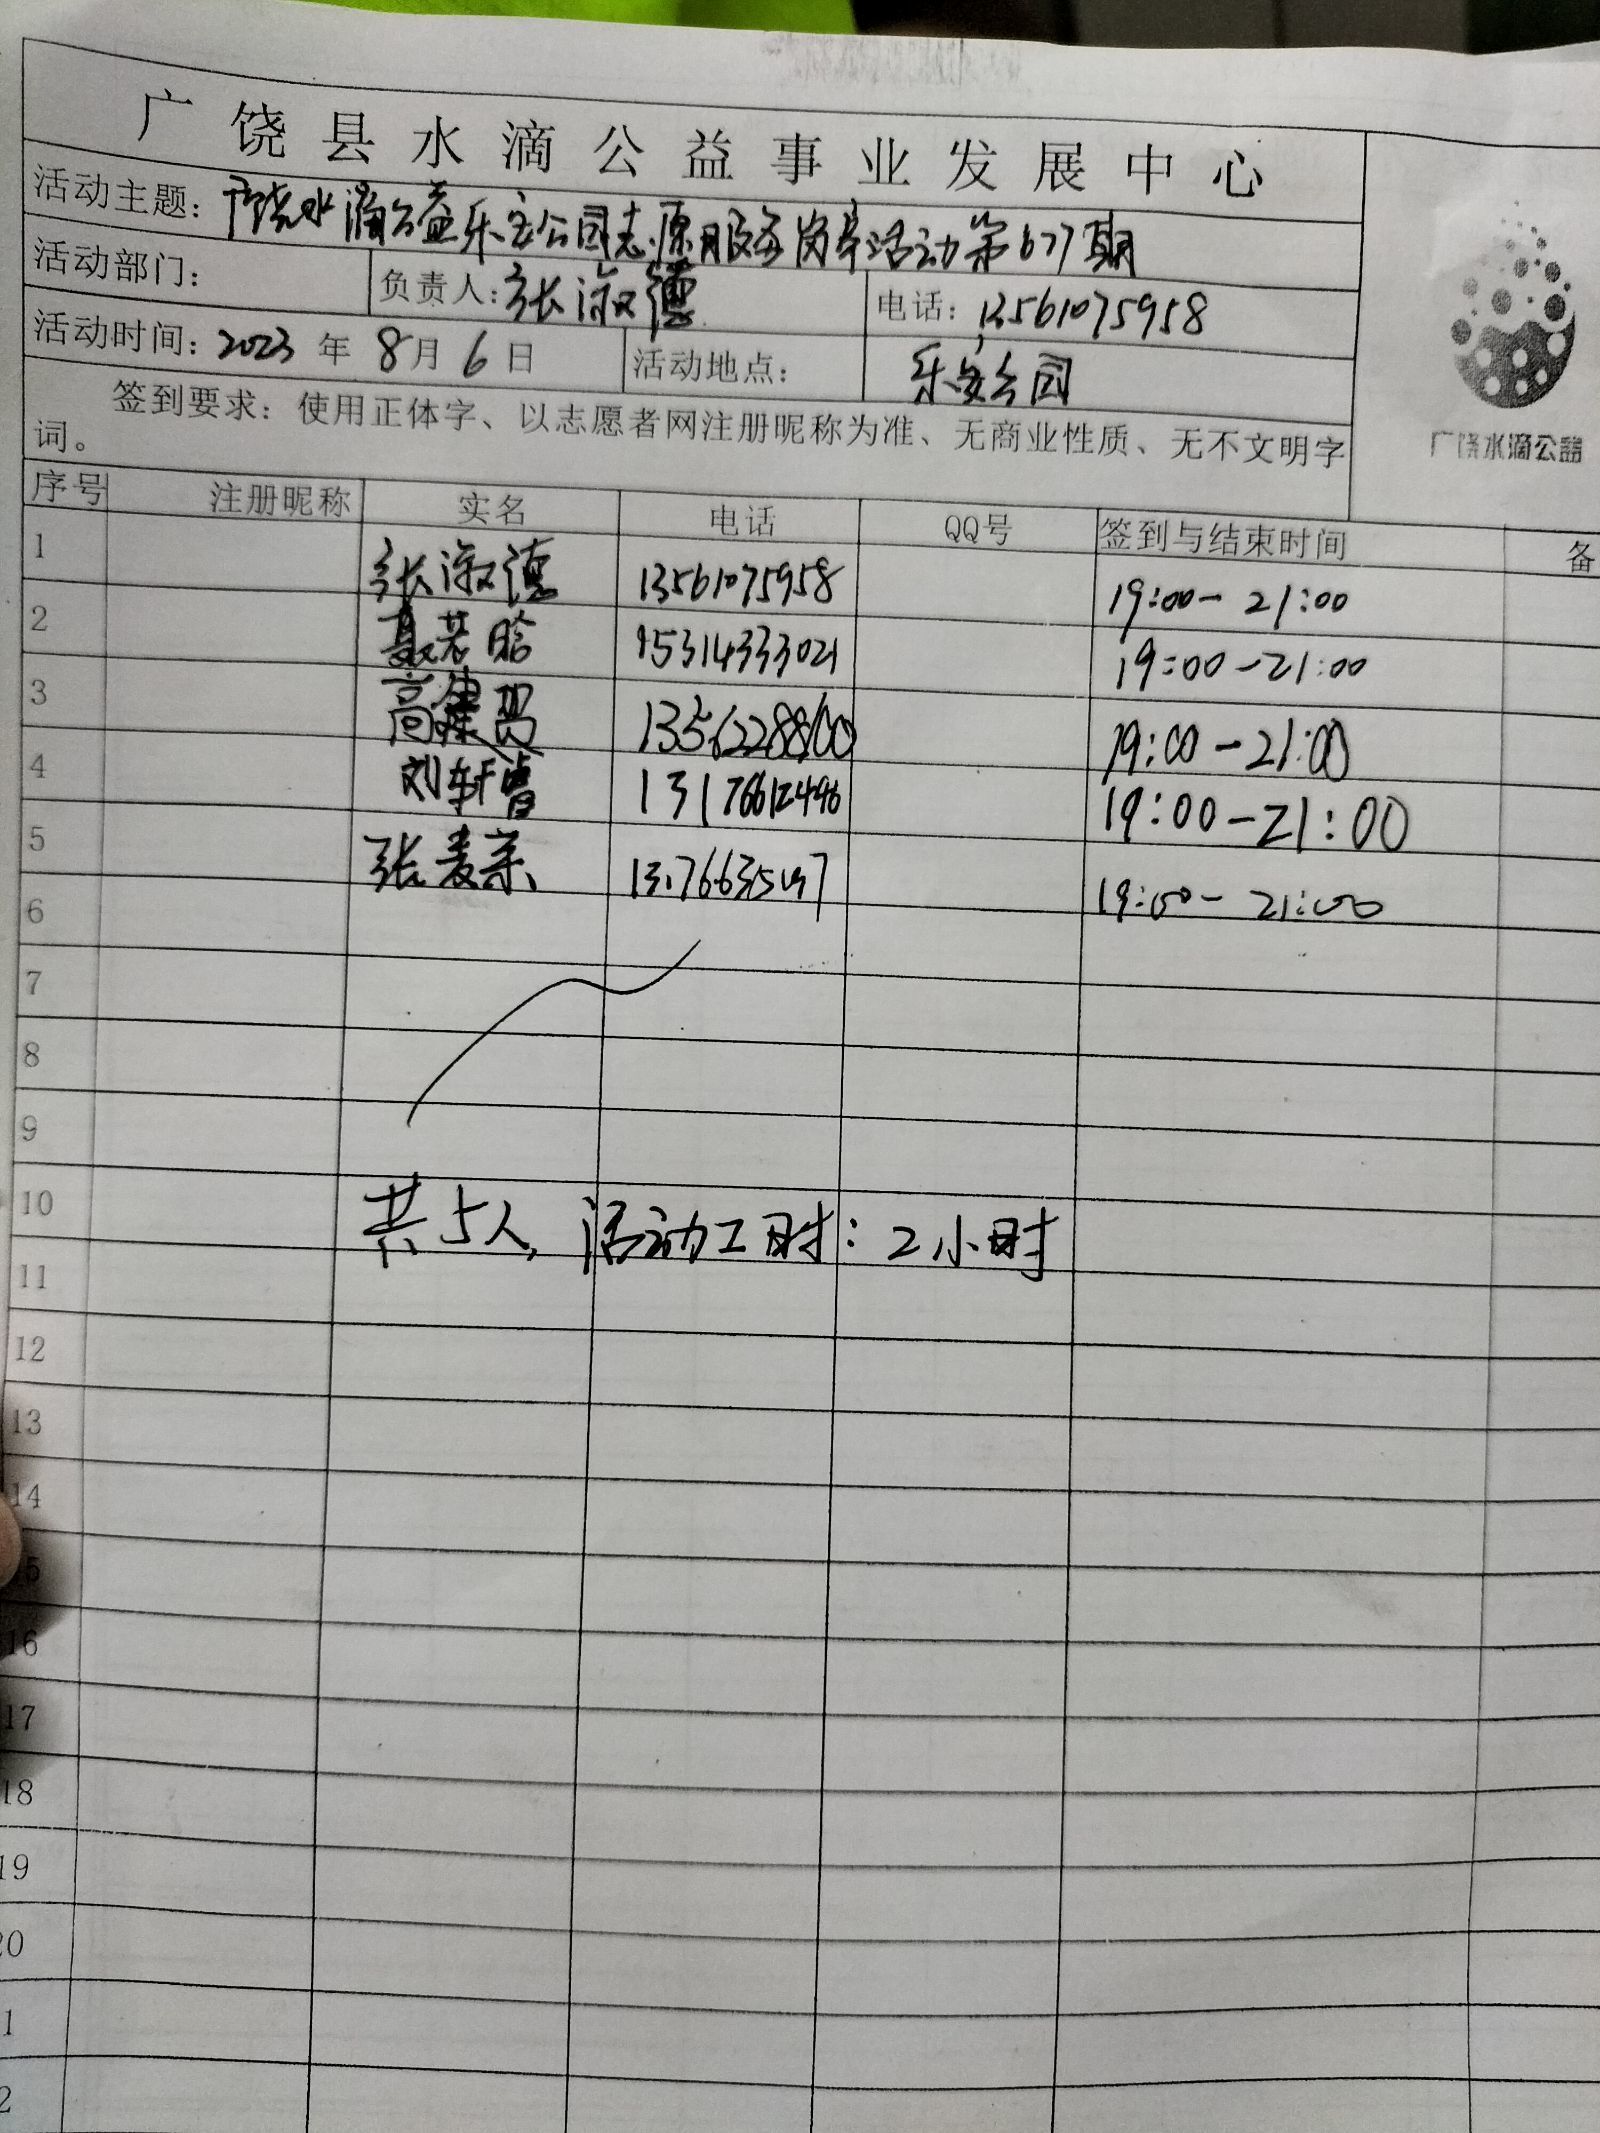 广饶县水滴公益事业发展中心
活动主题：广饶水滴公益乐安公园志愿服务岗亭活动第677期
活动部门： 负责人：张淑德 电话：13561075958
活动时间：2023年8月6日 活动地点： 乐安公园
签到要求：使用正体字、以志愿者网注册昵称为准、无商业性质、无不文明字
词。
广饶水滴公益
序号 注册昵称 实名 电话 QQ号 签到与结束时间 备
1 张淑德 13561075958 19:00-21:00
2 聂若晗 15314333021 19:00-21:00
3 高 19:00-21:00
4 刘轩睿 13176612496 19:00-21:00
5 张麦荣 19:00-21:00
6
7
8
9
10 共5人，活动工时：2小时
11
12
13
14
15
16
17
18
19
20
1
2